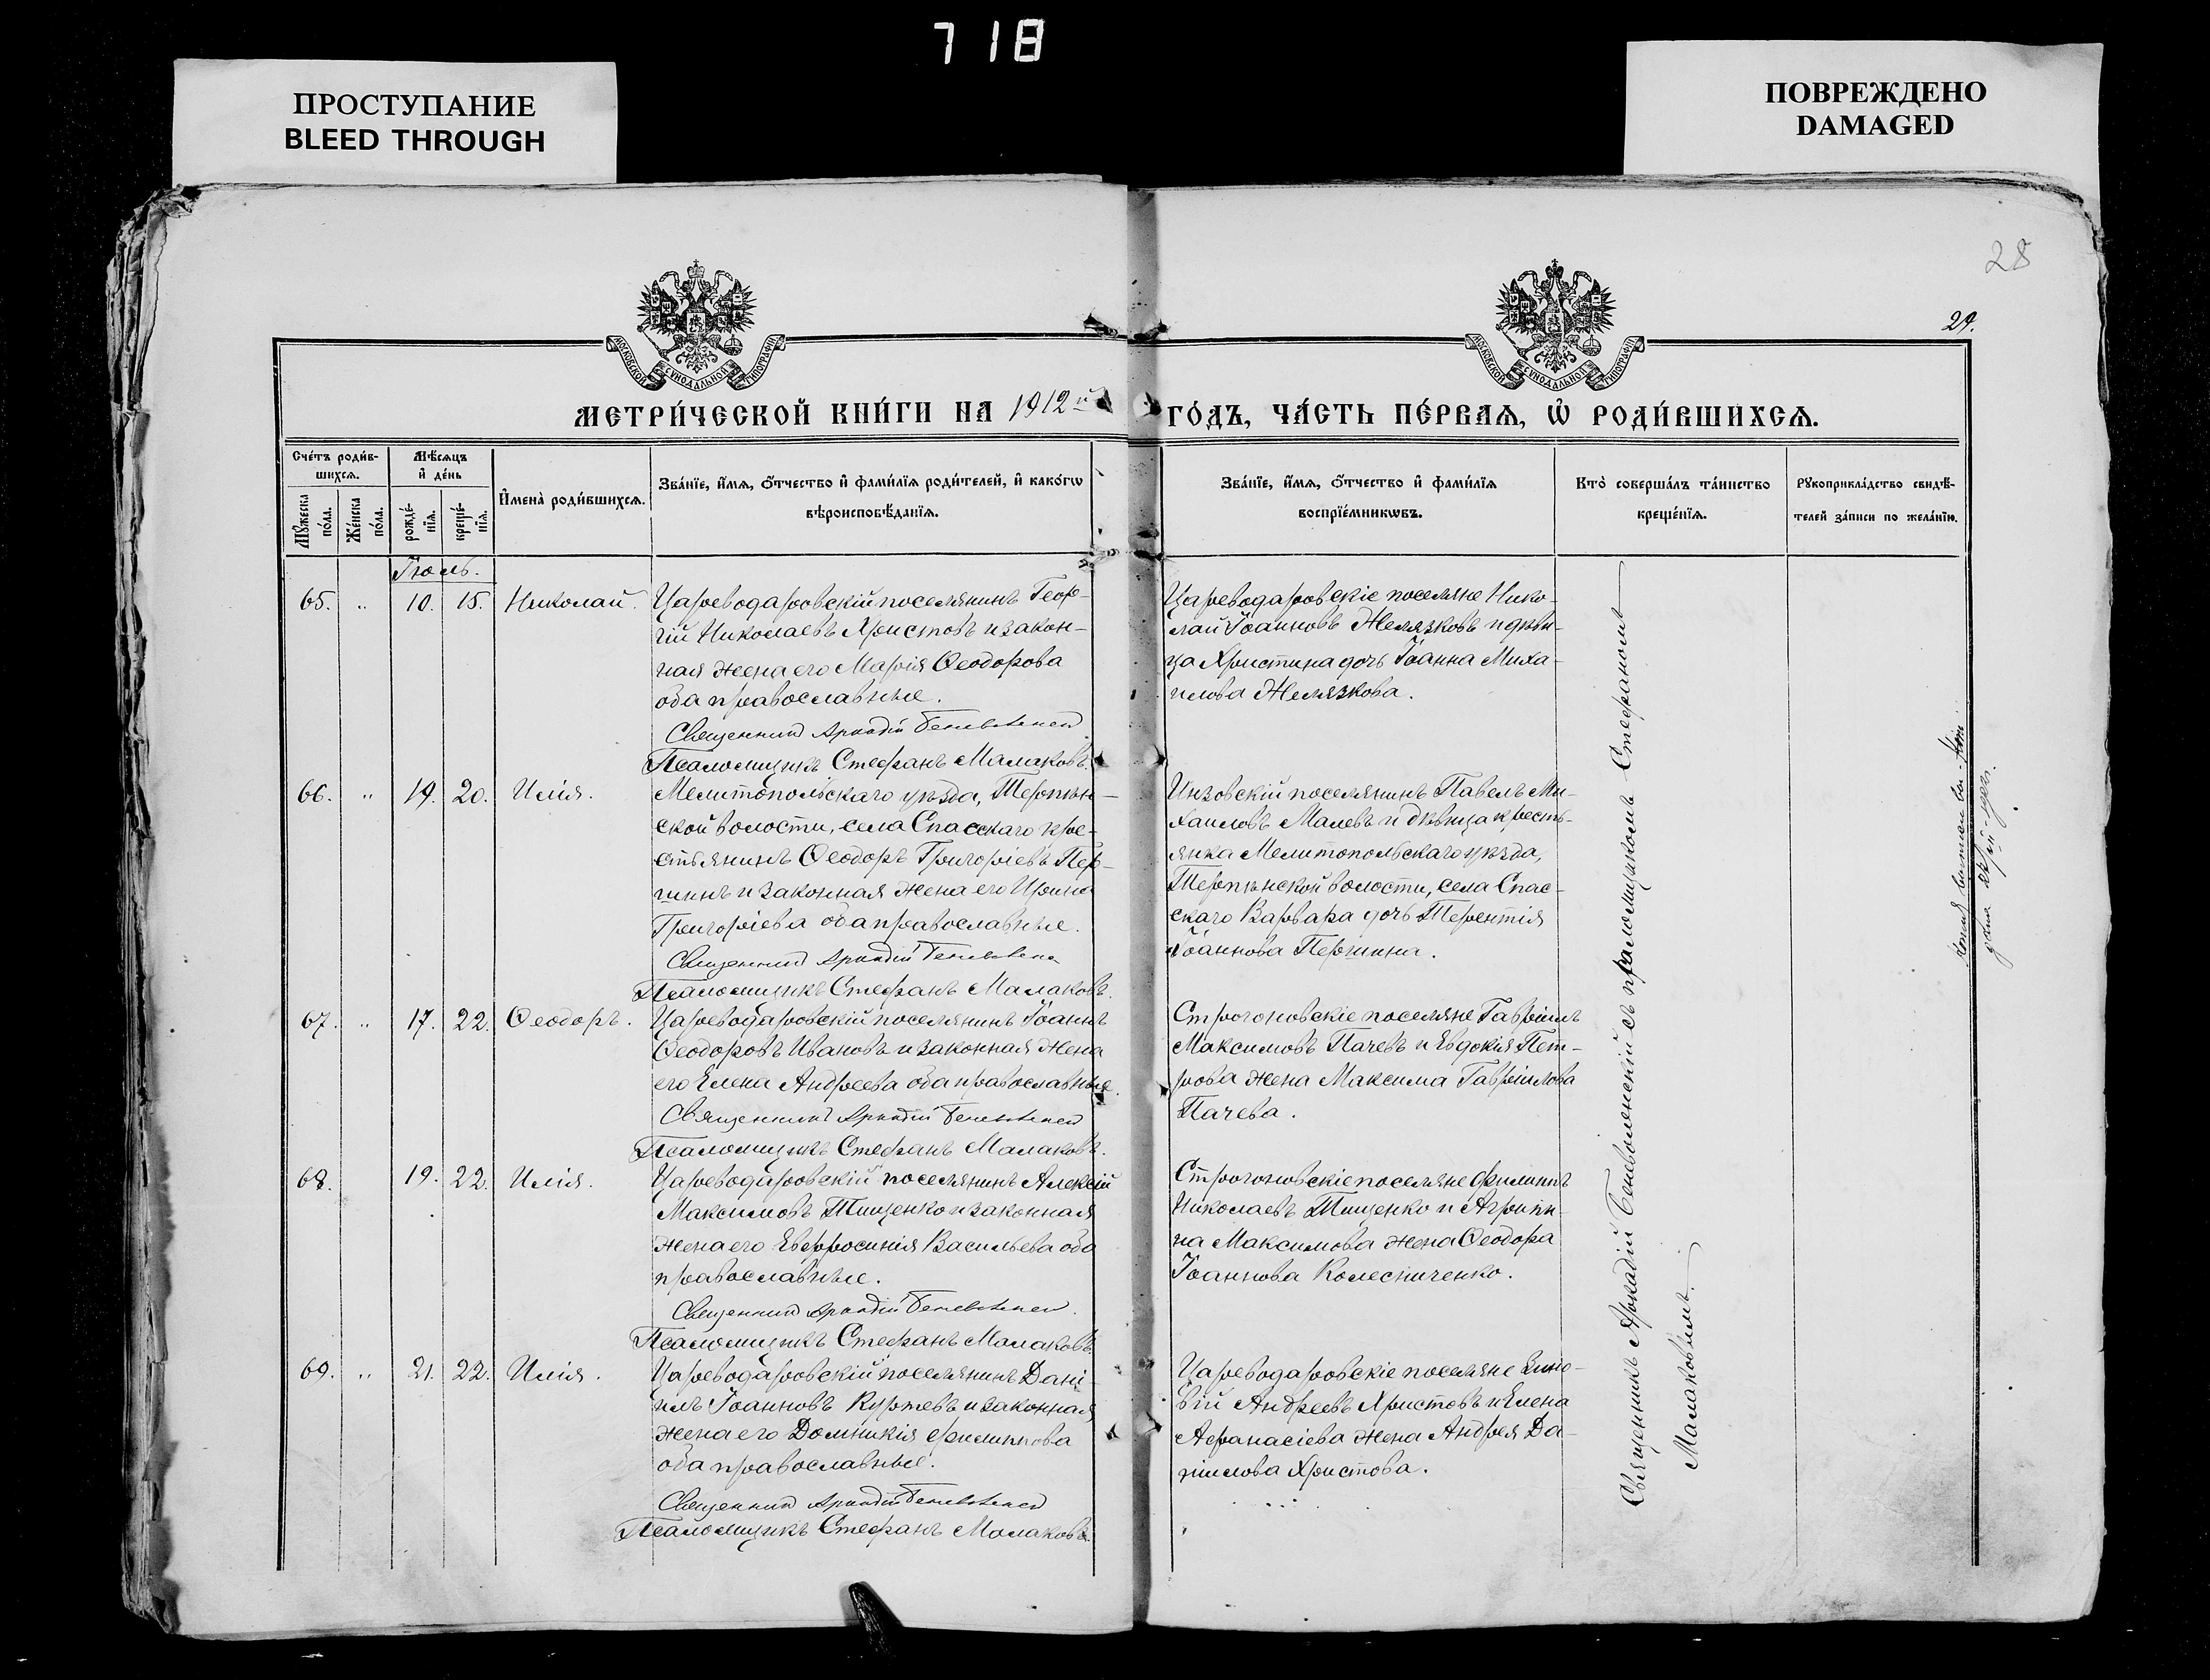 718
ПРОСТУПАНИЕ
BLEED THROUGH
ПОВРЕЖДЕНО
DAMAGED
28
29.
МОСКОВСКОЙ СѴНОДАЛЬНОЙ ТИПОГРАФІИ
МОСКОВСКОЙ СѴНОДАЛЬНОЙ ТИПОГРАФІИ
МЕТРИ́ЧЕСКОЙ КНИ́ГИ НА 1912й
ГО́ДЪ, ЧА́СТЬ ПЕ́РВАѦ, Ѡ҆ РОДИ́ВШИХСѦ.
Сче́тъ роди́в-
шихсѧ.
Мѣ́сѧцъ
и҆ де́нь
Мꙋ́жеска по́ла.
Же́нска по́ла.
рожде́-нїѧ.
креще́-нїѧ.
И҆мена̀ роди́вшихсѧ.
Зва́нїе, и҆́мѧ, ѻ҆́тчество и҆ фами́лїѧ роди́телей, и҆ како́гѡ
вѣроисповѣ́данїѧ.
Зва́нїе, и҆́мѧ, ѻ҆́тчество и҆ фами́лїѧ
воспрїе́мникѡвъ.
Кто̀ соверша́лъ та́инство
креще́нїѧ.
Рꙋкоприкла́дство свидѣ́-
телей за́писи по жела́нїю.
Іюль.
65. „ 10. 15. Николай.
Цареводаровскій поселянинъ Геор-
гій Николаевъ Христовъ и закон-
ная жена его Марія Ѳеодорова
оба православные.
Священникъ Аркадій Беневоленскій
Псаломщикъ Стефанъ Малаковъ.
Цареводаровскіе поселяне Нико-
лай Іоанновъ Желязковъ и дѣви-
ца Христина дочь Іоанна Миха-
илова Желязкова.
66. „ 19. 20. Илія.
Мелитопольскаго уѣзда, Терпѣн-
ской волости, села Спасскаго кре-
стьянинъ Ѳеодоръ Григоріевъ Пер-
шинъ и законная жена его Ирина
Григоріева оба православные.
Священникъ Аркадій Беневоленскій
Псаломщикъ Стефанъ Малаковъ.
Инзовскій поселянинъ Павелъ Ми-
хаиловъ Малевъ и дѣвица кресть-
янка Мелитопольскаго уѣзда,
Терпѣнской волости, села Спас-
скаго Варвара дочь Терентія
Іоаннова Першина.
67. „ 17. 22. Ѳеодоръ.
Цареводаровскій поселянинъ Іоаннъ
Ѳеодоровъ Ивановъ и законная жена
его Елена Андреева оба православные.
Священникъ Аркадій Беневоленскій
Псаломщикъ Стефанъ Малаковъ.
Строгоновскіе поселяне Гавріилъ
Максимовъ Пачевъ и Евдокія Пет-
рова жена Максима Гавріилова
Пачева.
68. 19. 22. Илія.
Цареводаровскій поселянинъ Алексій
Максимовъ Тищенко и законная
жена его Евфросинія Васильева оба
православные.
Священникъ Аркадій Беневоленскій
Псаломщикъ Стефанъ Малаковъ
Строгоновскіе поселяне Филиппъ
Николаевъ Тищенко и Агрипи-
на Максимова жена Ѳеодора
Іоаннова Колесниченко.
69. „ 21. 22. Илія.
Цареводаровскій поселянинъ Дані-
илъ Іоанновъ Куртевъ и законная
жена его Домникія Филиппова
оба православные.
Священникъ Аркадій Беневоленскій
Псаломщикъ Стефанъ Малаковъ
Цареводаровскіе поселяне Зино-
вій Андреевъ Христовъ и Елена
Афанасіева жена Андрея Да-
ніилова Христова.
Священникъ Аркадій Беневоленскій съ псаломщикомъ Стефаномъ
Малаковымъ.